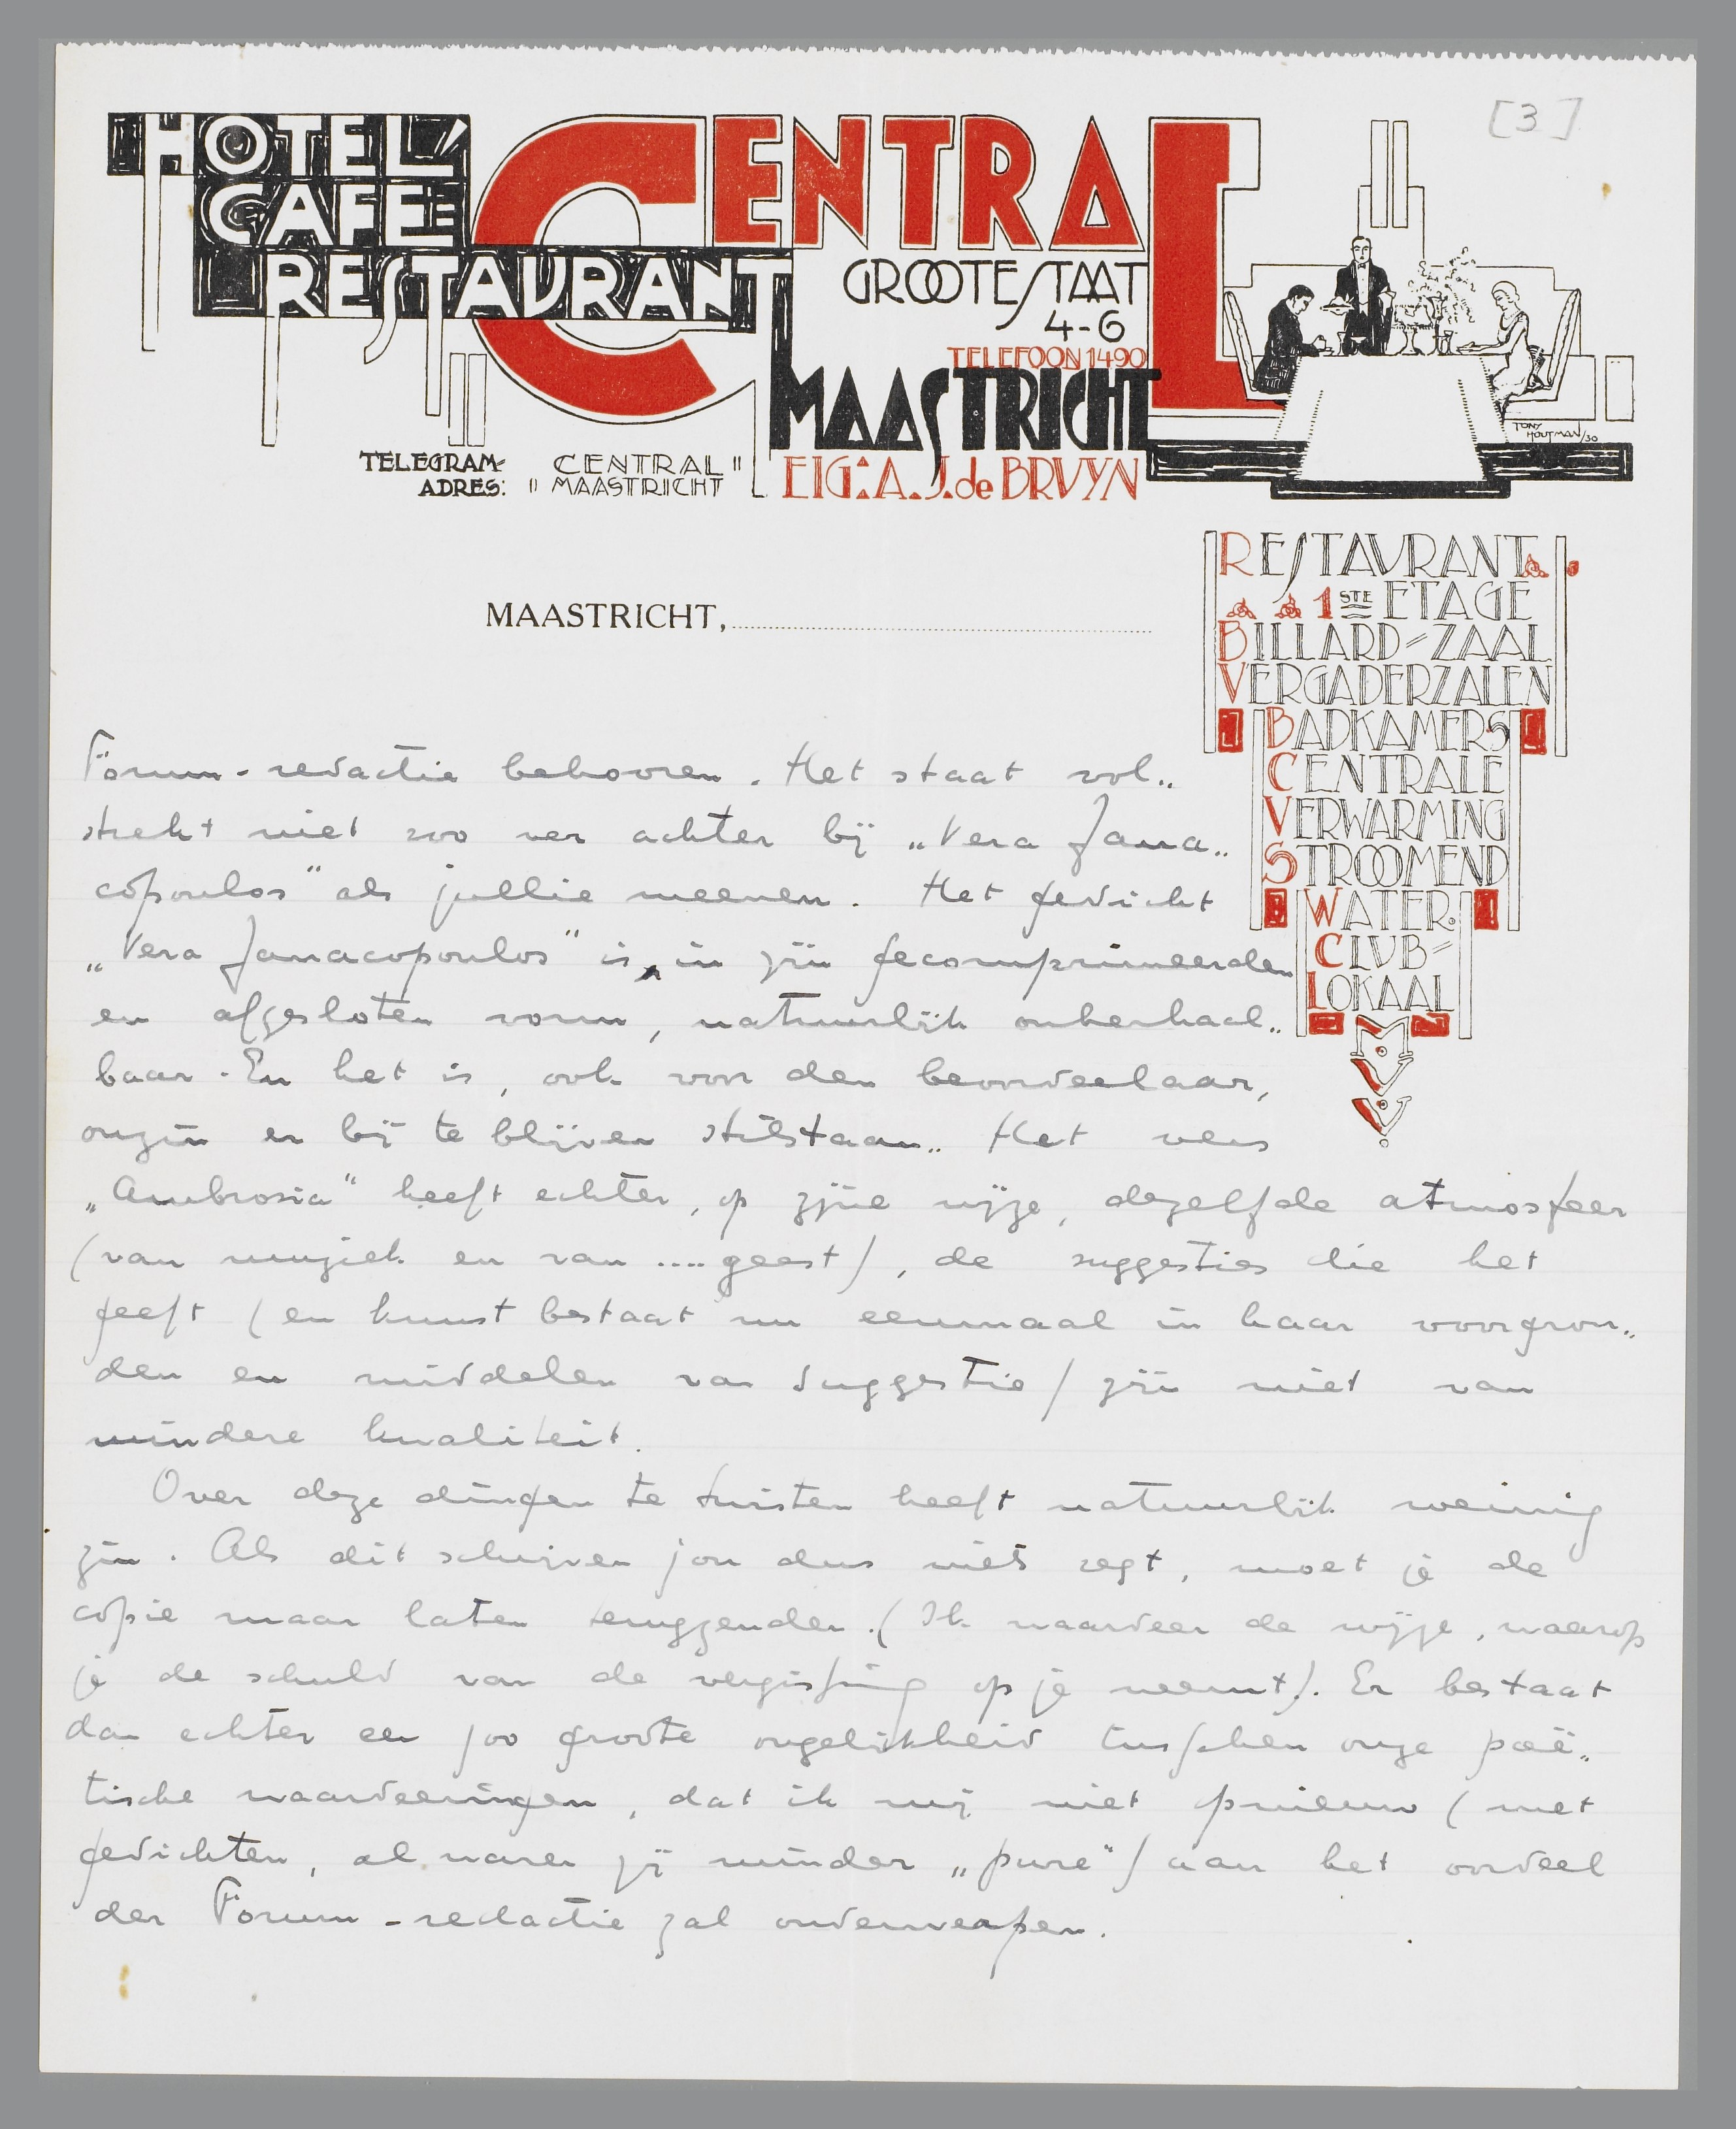 [3]
HOTEL
CAFE
RESTAURANT
CENTRAL
GROOTE STAAT
4-6
TELEFOON 1490
MAASTRICHT
EIG: A. J. de BRUYN
TELEGRAM-
ADRES:
"CENTRAL"
"MAASTRICHT
TONY
HOUTMAN/30
RESTAURANT
1STE ETAGE
BILLARD-ZAAL
VERGADERZALEN
BADKAMERS
CENTRALE
VERWARMING
STROOMEND
WATER.
CLUB-
LOKAAL
MAASTRICHT,
Forum-redactie behooren. Het staat vol„
strekt niet zoo ver achter bij „Vera Jana„
copoulos" als jullie meenen. Het gedicht
„Vera Janacopoulos" is, in zijn gecomprimeerden
en afgesloten vorm, natuurlijk onherhaal„
baar. En het is, ook voor den beoordeelaar,
onzin er bij te blijven stilstaan. Het vers
„Ambrosia" heeft echter, op zijne wijze, dezelfde atmosfeer
(van muziek en van .... geest), de suggesties die het
geeft (en kunst bestaat nu eenmaal in haar voorgron„
den en middelen van suggestie) zijn niet van
mindere kwaliteit.
Over deze dingen te twisten heeft natuurlijk weinig
zin. Als dit schrijven jou dus niets zegt, moet je de
copie maar laten terugzenden. (Ik waardeer de wijze, waarop
je de schuld van de vergissing op je neemt). Er bestaat
dan echter een zoo groote ongelijkheid tusschen onze poë„
tische waardeeringen, dat ik mij niet opnieuw (met
gedichten, al waren zij minder „pure") aan het oordeel
der Forum-redactie zal onderwerpen.